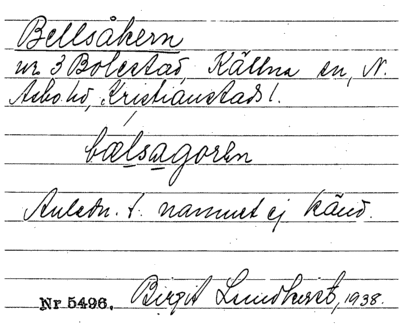 Bellsåkern
nr 3 Bolestad, Källna sn, N.
Asbo hd, Kristianstads l.
bælsagoren
Anledn. t. namnet ej känd.
Nr 5496. Birgit Lundkvist, 1938.